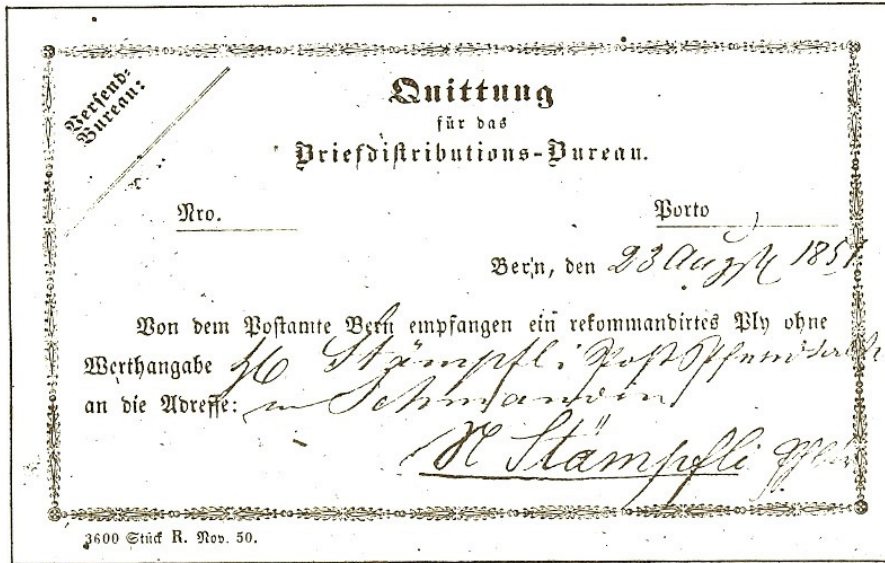 Versend-
Bureau:
Quittung
für das
Briefdistributions-Bureau.
Nro.
Porto
Bern, den 23 Augst 1851
Von dem Postamte Bern empfangen ein rekommandirtes Ply ohne
Werthangabe Stämpfli Post
an die Adresse: in
N Stämpfli
3600 Stück R. Nov. 50.